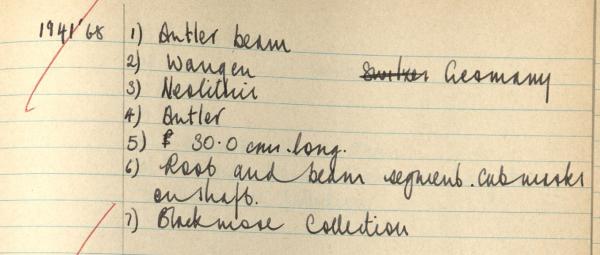 1941'68 1) Antler beam
2) Wangen Germany
3) Neolithic
4) Antler
5) 30.0 cms. long.
6) Root and beam segment. Cut marks
on shaft.
7) Blackmore Collection